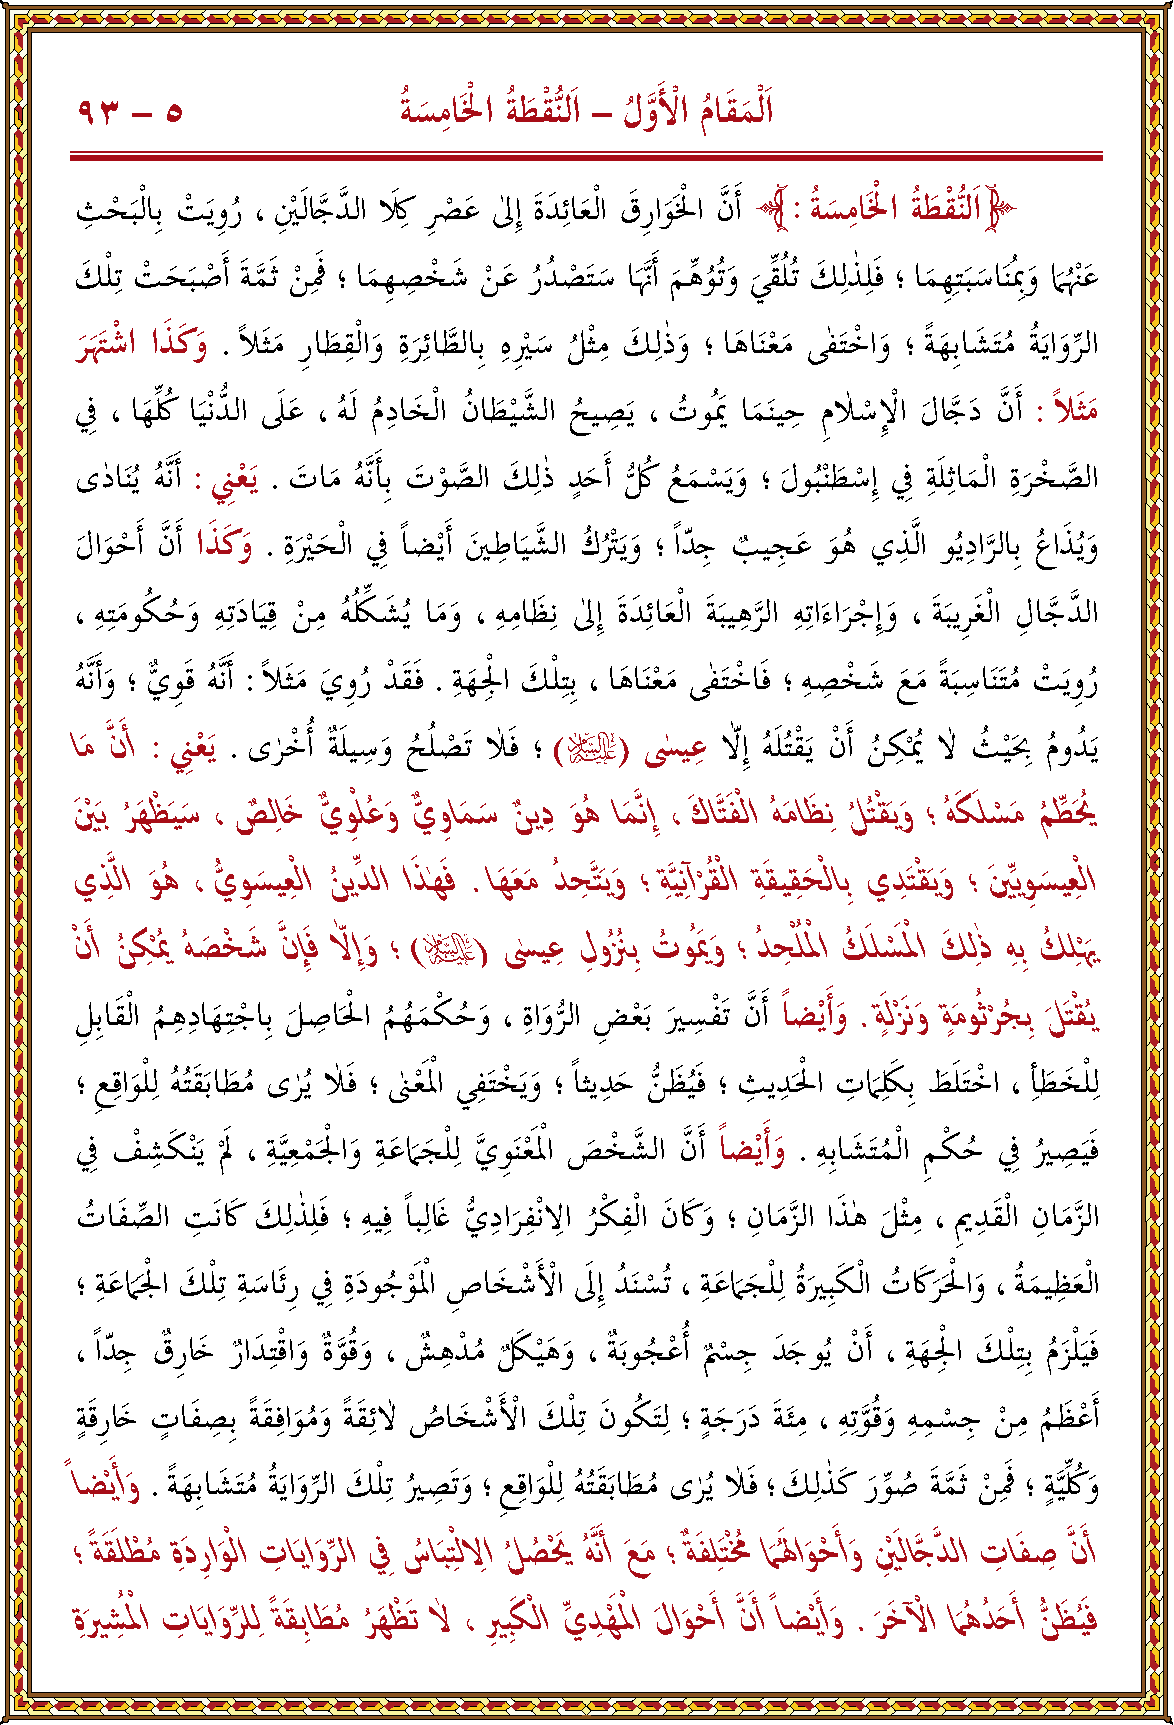 اَلْمَقَامُ الْأَوَّلُ – اَلنُّقْطَةُ الْخَامِسَةُ ٥ – ٩٣
﴿اَلنُّقْطَةُ الْخَامِسَةُ : ﴾ أَنَّ الْخَوَارِقَ الْعَائِدَةَ إِلٰى عَصْرِ كِلَا الدَّجَّالَيْنِ ، رُوِيَتْ بِالْبَحْثِ
عَنْهُمَا وَبِمُنَاسَبَتِهِمَا ؛ فَلِذٰلِكَ تُلُقِّيَ وَتُوُهِّمَ أَنَّهَا سَتَصْدُرُ عَنْ شَخْصِهِمَا ؛ فَمِنْ ثَمَّةَ أَصْبَحَتْ تِلْكَ
الرِّوَايَةُ مُتَشَابِهَةً ؛ وَاخْتَفٰى مَعْنَاهَا ؛ وَذٰلِكَ مِثْلُ سَيْرِهِ بِالطَّائِرَةِ وَالْقِطَارِ مَثَلاً . وَكَذَا اشْتَهَرَ
مَثَلاً : أَنَّ دَجَّالَ الْإِسْلَامِ حِينَمَا يَمُوتُ ، يَصِيحُ الشَّيْطَانُ الْخَادِمُ لَهُ ، عَلَى الدُّنْيَا كُلِّهَا ، فِي
الصَّخْرَةِ الْمَاثِلَةِ فِي إِسْطَنْبُولَ ؛ وَيَسْمَعُ كُلُّ أَحَدٍ ذٰلِكَ الصَّوْتَ بِأَنَّهُ مَاتَ . يَعْنِي : أَنَّهُ يُنَادٰى
وَيُذَاعُ بِالرَّادِيُو الَّذِي هُوَ عَجِيبٌ جِدّاً ؛ وَيَتْرُكُ الشَّيَاطِينَ أَيْضاً فِي الْحَيْرَةِ . وَكَذَا أَنَّ أَحْوَالَ
الدَّجَّالِ الْغَرِيبَةَ ، وَإِجْرَاءَاتِهِ الرَّهِيبَةَ الْعَائِدَةَ إِلٰى نِظَامِهِ ، وَمَا يُشَكِّلُهُ مِنْ قِيَادَتِهِ وَحُكُومَتِهِ ،
رُوِيَتْ مُتَنَاسِبَةً مَعَ شَخْصِهِ ؛ فَاخْتَفٰى مَعْنَاهَا ، بِتِلْكَ الْجِهَةِ . فَقَدْ رُوِيَ مَثَلاً : أَنَّهُ قَوِيٌّ ؛ وَأَنَّهُ
يَدُومُ بِحَيْثُ لَا يُمْكِنُ أَنْ يَقْتُلَهُ إِلَّا عِيسٰى (عليه السلام) ؛ فَلَا تَصْلُحُ وَسِيلَةٌ أُخْرٰى . يَعْنِي : أَنَّ مَا
يُحَطِّمُ مَسْلَكَهُ ؛ وَيَقْتُلُ نِظَامَهُ الْفَتَّاكَ ، إِنَّمَا هُوَ دِينٌ سَمَاوِيٌّ وَعُلْوِيٌّ خَالِصٌ ، سَيَظْهَرُ بَيْنَ
الْعِيسَوِيِّينَ ؛ وَيَقْتَدِي بِالْحَقِيقَةِ الْقُرْآنِيَّةِ ؛ وَيَتَّحِدُ مَعَهَا . فَهٰذَا الدِّينُ الْعِيسَوِيُّ ، هُوَ الَّذِي
يَهْلِكُ بِهِ ذٰلِكَ الْمَسْلَكُ الْمُلْحِدُ ؛ وَيَمُوتُ بِنُزُولِ عِيسٰى (عليه السلام) ؛ وَإِلَّا فَإِنَّ شَخْصَهُ يُمْكِنُ أَنْ
يُقْتَلَ بِجُرْثُومَةٍ وَنَزْلَةٍ . وَأَيْضاً أَنَّ تَفْسِيرَ بَعْضِ الرُّوَاةِ ، وَحُكْمَهُمُ الْحَاصِلَ بِاجْتِهَادِهِمُ الْقَابِلِ
لِلْخَطَأِ ، اخْتَلَطَ بِكَلِمَاتِ الْحَدِيثِ ؛ فَيُظَنُّ حَدِيثاً ؛ وَيَخْتَفِي الْمَعْنٰى ؛ فَلَا يُرٰى مُطَابَقَتُهُ لِلْوَاقِعِ ؛
فَيَصِيرُ فِي حُكْمِ الْمُتَشَابِهِ . وَأَيْضاً أَنَّ الشَّخْصَ الْمَعْنَوِيَّ لِلْجَمَاعَةِ وَالْجَمْعِيَّةِ ، لَمْ يَنْكَشِفْ فِي
الزَّمَانِ الْقَدِيمِ ، مِثْلَ هٰذَا الزَّمَانِ ؛ وَكَانَ الْفِكْرُ الِانْفِرَادِيُّ غَالِباً فِيهِ ؛ فَلِذٰلِكَ كَانَتِ الصِّفَاتُ
الْعَظِيمَةُ ، وَالْحَرَكَاتُ الْكَبِيرَةُ لِلْجَمَاعَةِ ، تُسْنَدُ إِلَى الْأَشْخَاصِ الْمَوْجُودَةِ فِي رَئَاسَةِ تِلْكَ الْجَمَاعَةِ ؛
فَيَلْزَمُ بِتِلْكَ الْجِهَةِ ، أَنْ يُوجَدَ جِسْمٌ أُعْجُوبَةٌ ، وَهَيْكَلٌ مُدْهِشٌ ، وَقُوَّةٌ وَاقْتِدَارٌ خَارِقٌ جِدّاً ،
أَعْظَمُ مِنْ جِسْمِهِ وَقُوَّتِهِ ، مِئَةَ دَرَجَةٍ ؛ لِتَكُونَ تِلْكَ الْأَشْخَاصُ لَائِقَةً وَمُوَافِقَةً بِصِفَاتٍ خَارِقَةٍ
وَكُلِّيَّةٍ ؛ فَمِنْ ثَمَّةَ صُوِّرَ كَذٰلِكَ ؛ فَلَا يُرٰى مُطَابَقَتُهُ لِلْوَاقِعِ ؛ وَتَصِيرُ تِلْكَ الرِّوَايَةُ مُتَشَابِهَةً . وَأَيْضاً
أَنَّ صِفَاتِ الدَّجَّالَيْنِ وَأَحْوَالَهُمَا مُخْتَلِفَةٌ ؛ مَعَ أَنَّهُ يَحْصُلُ الِالْتِبَاسُ فِي الرِّوَايَاتِ الْوَارِدَةِ مُطْلَقَةً ؛
فَيُظَنُّ أَحَدُهُمَا الْآخَرَ . وَأَيْضاً أَنَّ أَحْوَالَ الْمَهْدِيِّ الْكَبِيرِ ، لَا تَظْهَرُ مُطَابِقَةً لِلرِّوَايَاتِ الْمُشِيرَةِ